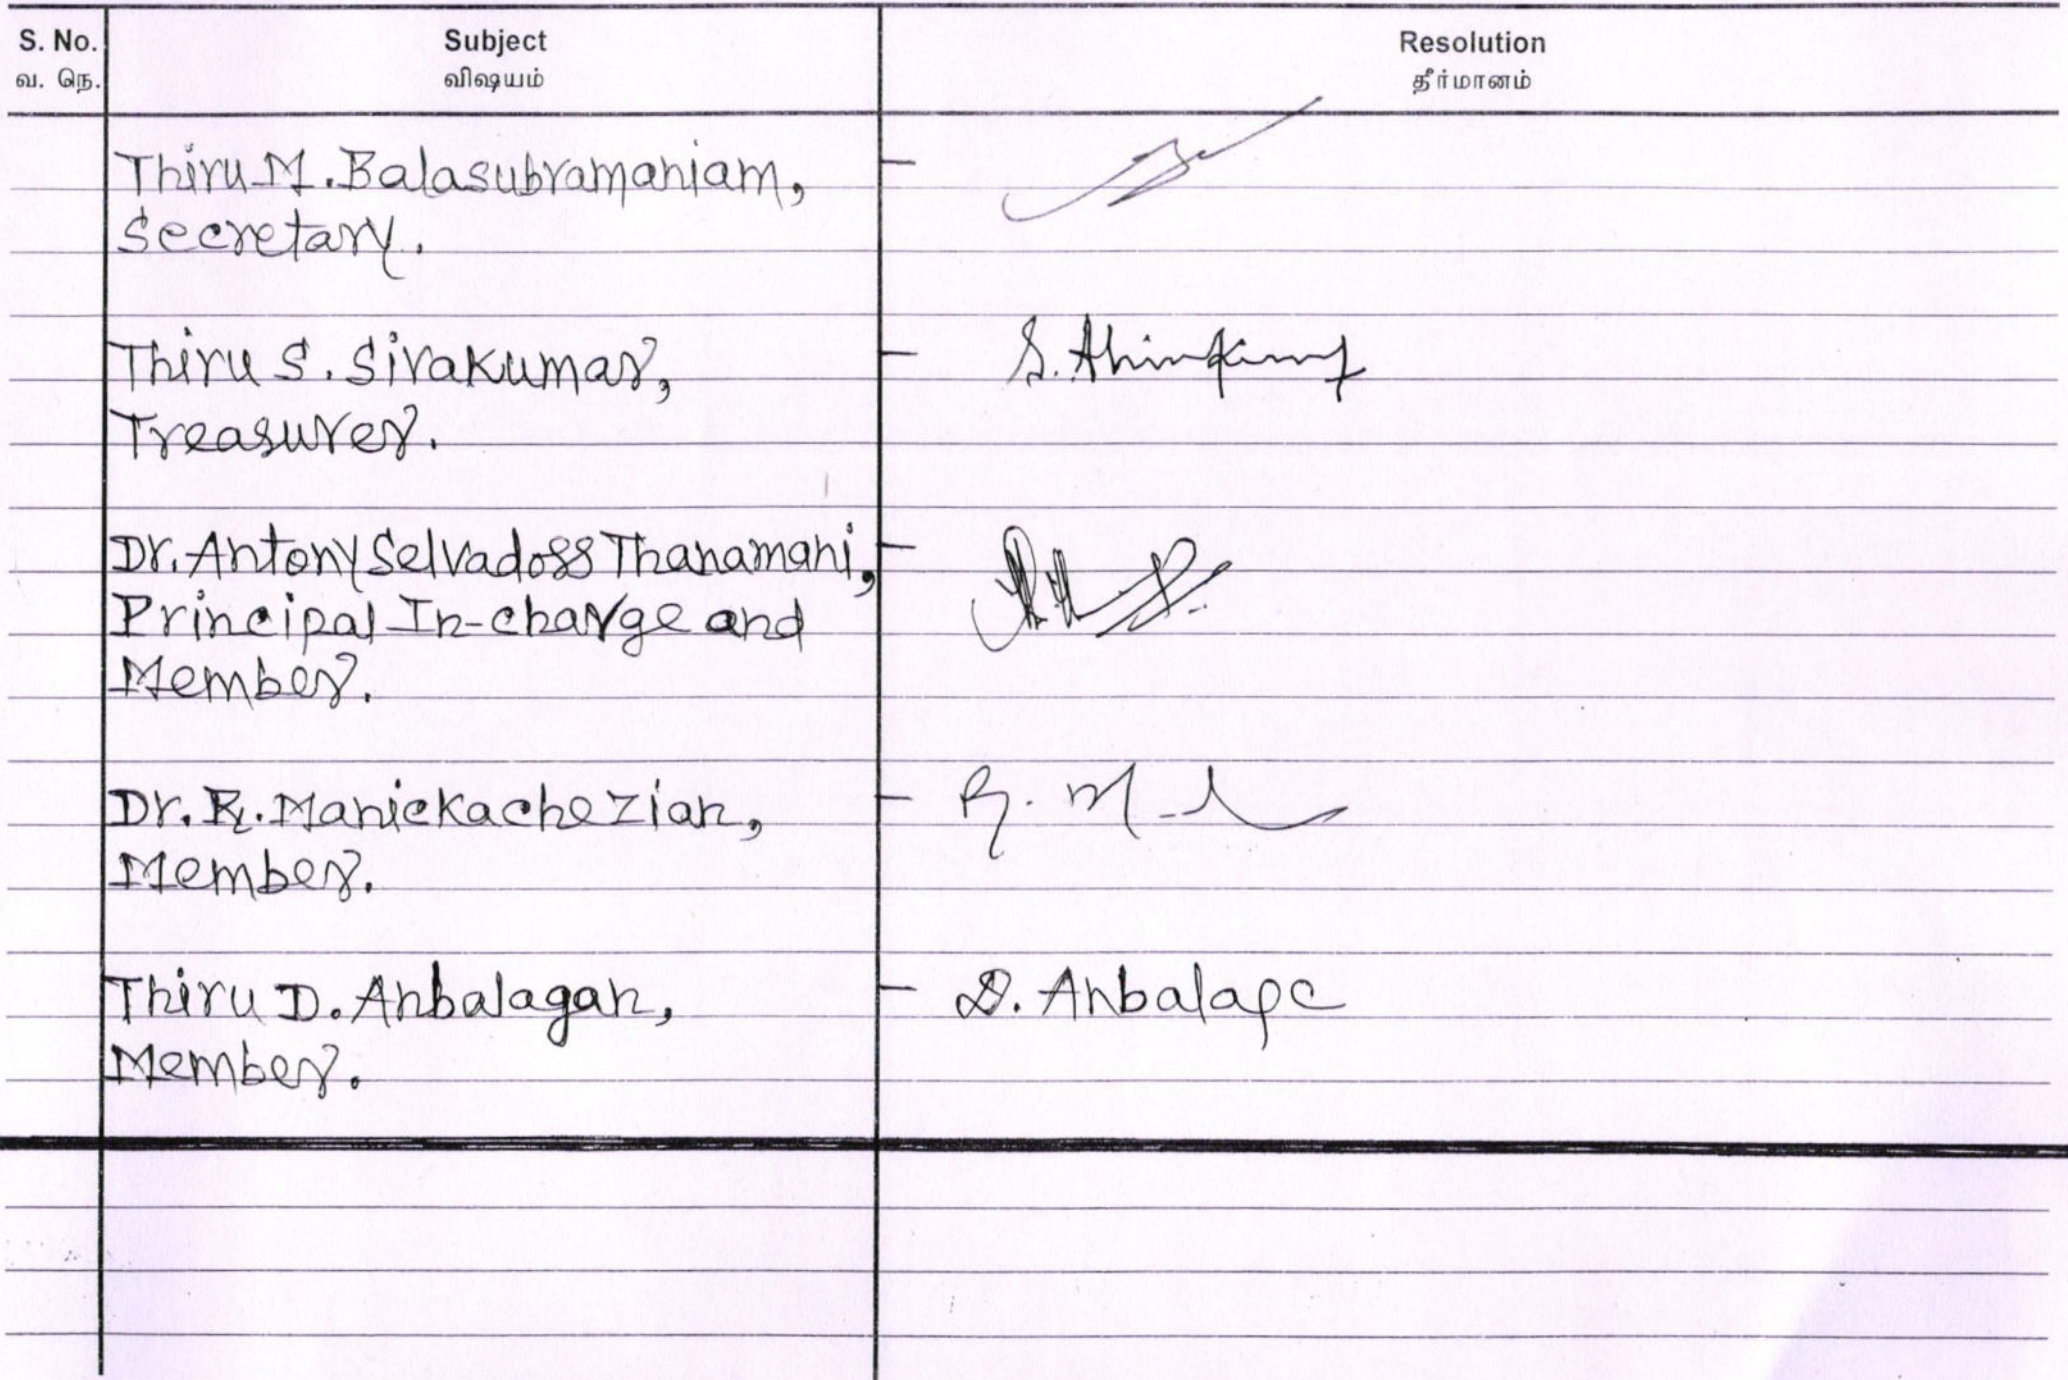 S. No. Subject Resolution
வ. நெ. விஷயம் தீர்மானம்
Thiru M. Balasubramaniam, -
Secretary.
Thiru S. Sivakumar, - S.
Treasurer.
Dr. Antony Selvadoss Thanamani, -
Principal In-charge and
Member.
Dr. R. Manickachezian, - R. M
Member.
Thiru D. Anbalagan, - D. Anbalaga
Member.